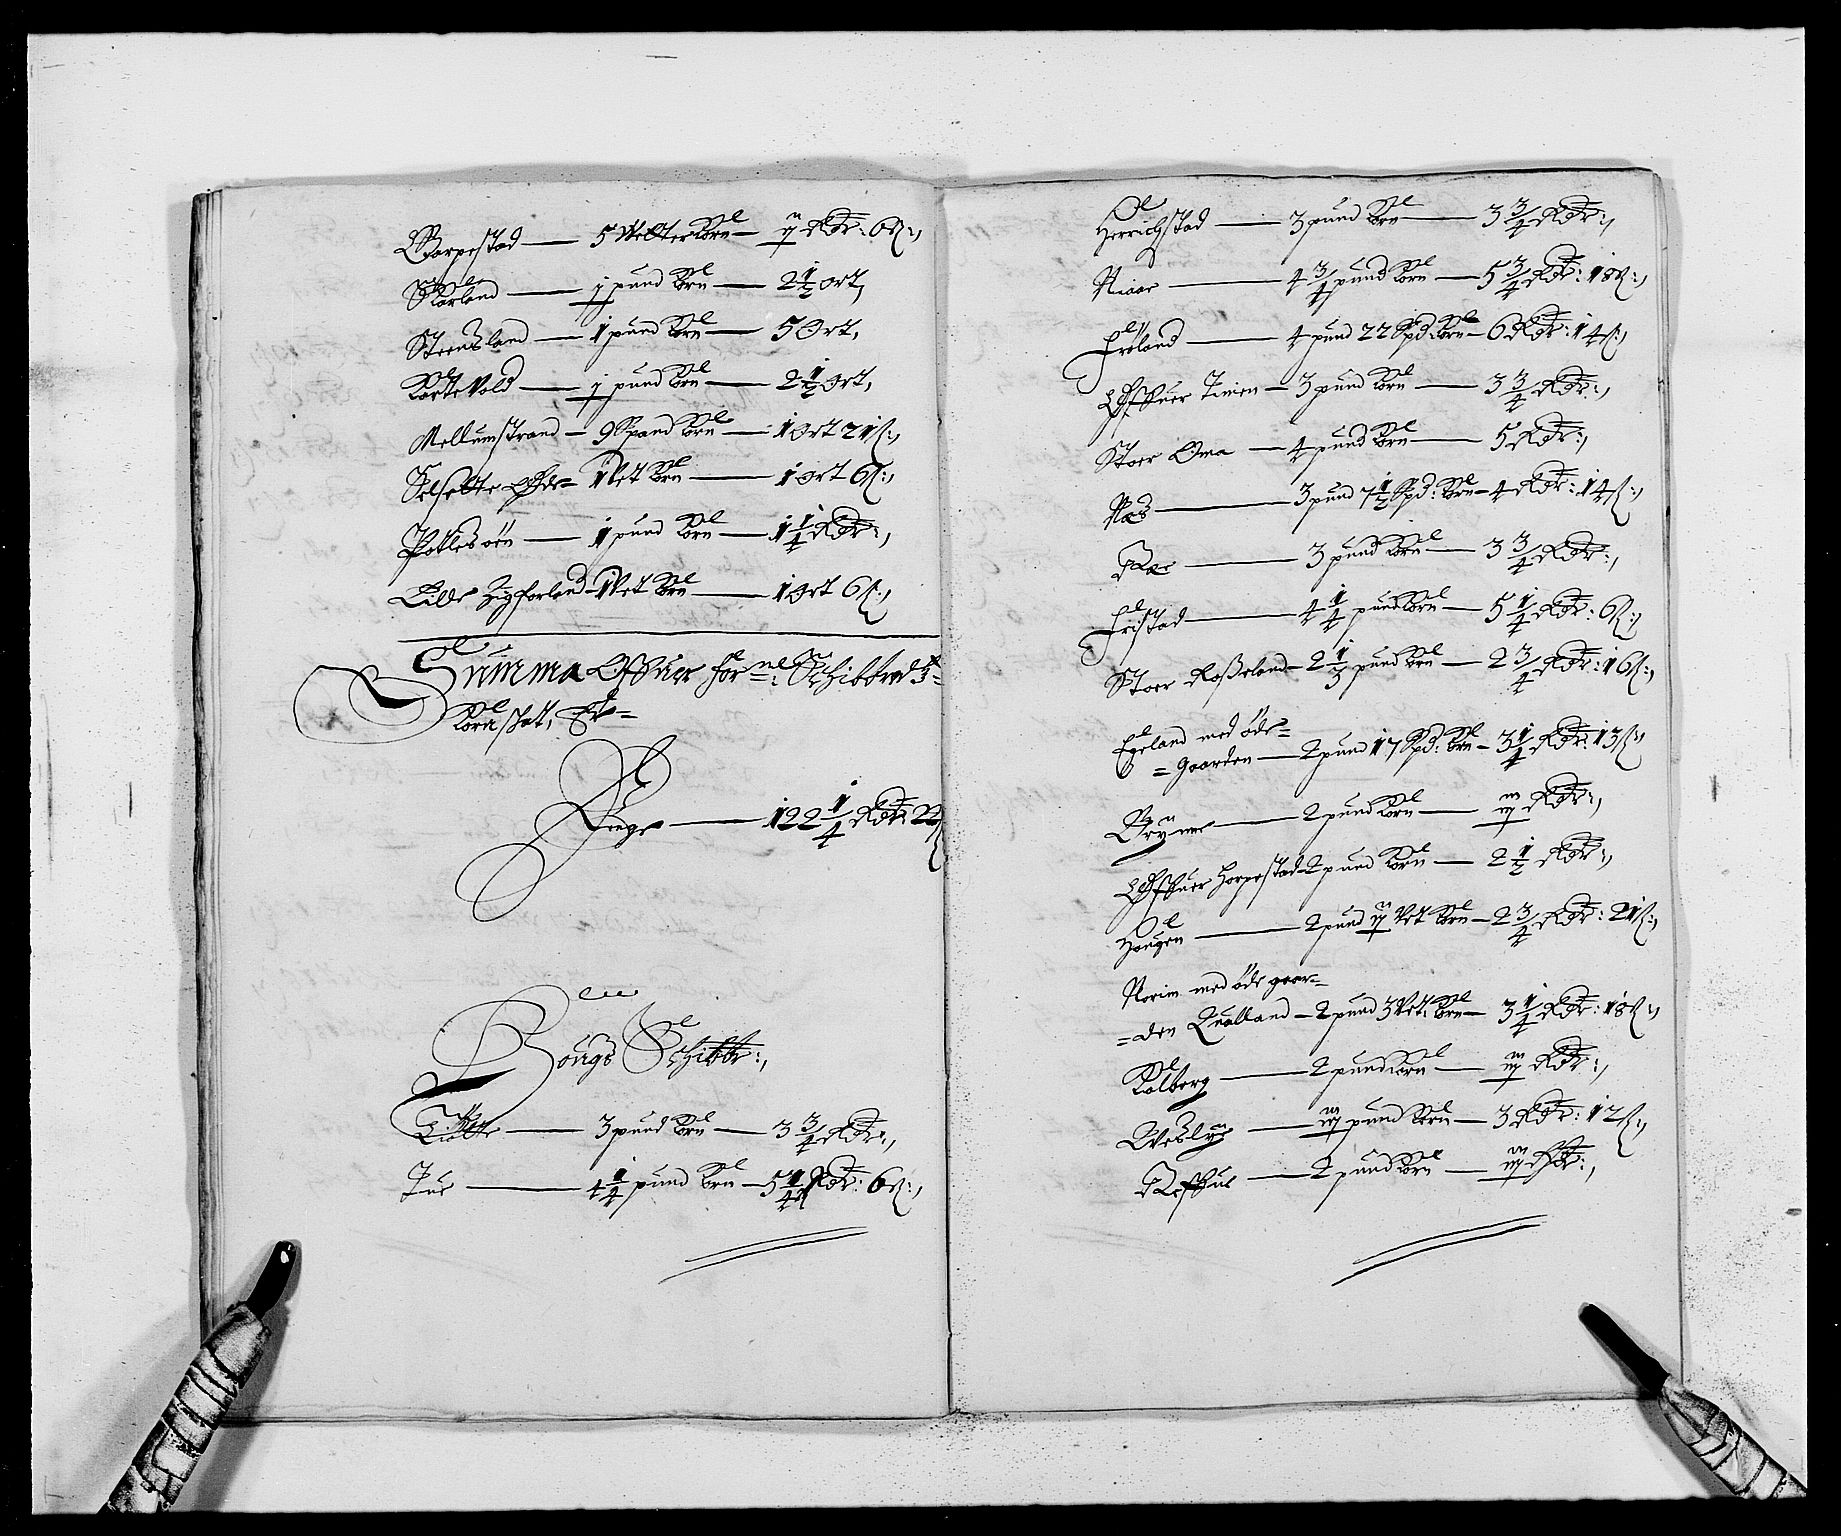 Garpestad — 5 Vetter Korn — ij Rdr: 6 s:,
Skorland — ½ pund Korn — 2½ ort,
Steensland — 1 pund Korn — 5 Ort,
Kartevold — ½ pund Korn — 2½ ort,
Mellumstrand — 9 Spand Korn — 1 ort 21 s:,
Selsette Øde= 1 Vet Korn — 1 ort 6 s:,
Potlesøen — 1 pund Korn — 1¼ Rdr:,
Lille Sigforland — 1 Vet Korn — 1 ort 6 s:,
Summa Offuer for:ne: Schibbreds
Kornskatt, Er=
Penge — 122¼ Rdr: 22 s
Bougs Schibbr:,
3 pund Korn — 3¾ Rdr:,
Tue — 4¼ pund Korn — 5¼ Rdr: 6 s:,
Herrichstad — 3 pund Korn — 3¾ Rdr:,
Niaae — 4¾ pund Korn — 5¾ Rdr: 18 s:,
Frøland — 4 pund 22 Spd: Korn — 6 Rdr: 14 s:,
Offuer Timen — 3 pund Korn — 3¾ Rdr:,
Stoer Oma — 4 pund Korn — 5 Rdr:,
Næs — 3 pund 7½ Spd: Korn — 4 Rdr: 14 s:,
Ræe — 3 pund Korn — 3¾ Rdr:,
Fristad — 4¼ pund Korn — 5¼ Rdr: 6 s:,
Stoer Roßeland — 2⅓ pund Korn — 2¾ Rdr: 16 s:,
Egeland med øde=
=Gaarden — 2 pund 17 Spd: Korn — 3¼ Rdr: 13 s:,
Brynne — 2 pund Korn — iij Rdr:,
Offuer Horpestad — 2 pund Korn — 2½ Rdr:,
Hougen — 2 pund ij Vet Korn — 2¾ Rdr: 21 s:,
Norim med øde gaar=
=den Qualland — 2 pund 3 Vet: Korn — 3¼ Rdr: 18 s:,
Kalberg — 2 pund Korn — iij Rdr:,
Veslye — iij pund Korn — 3 Rdr: 12 s:,
Refhue — 2 pund Korn — iij Rdr:,